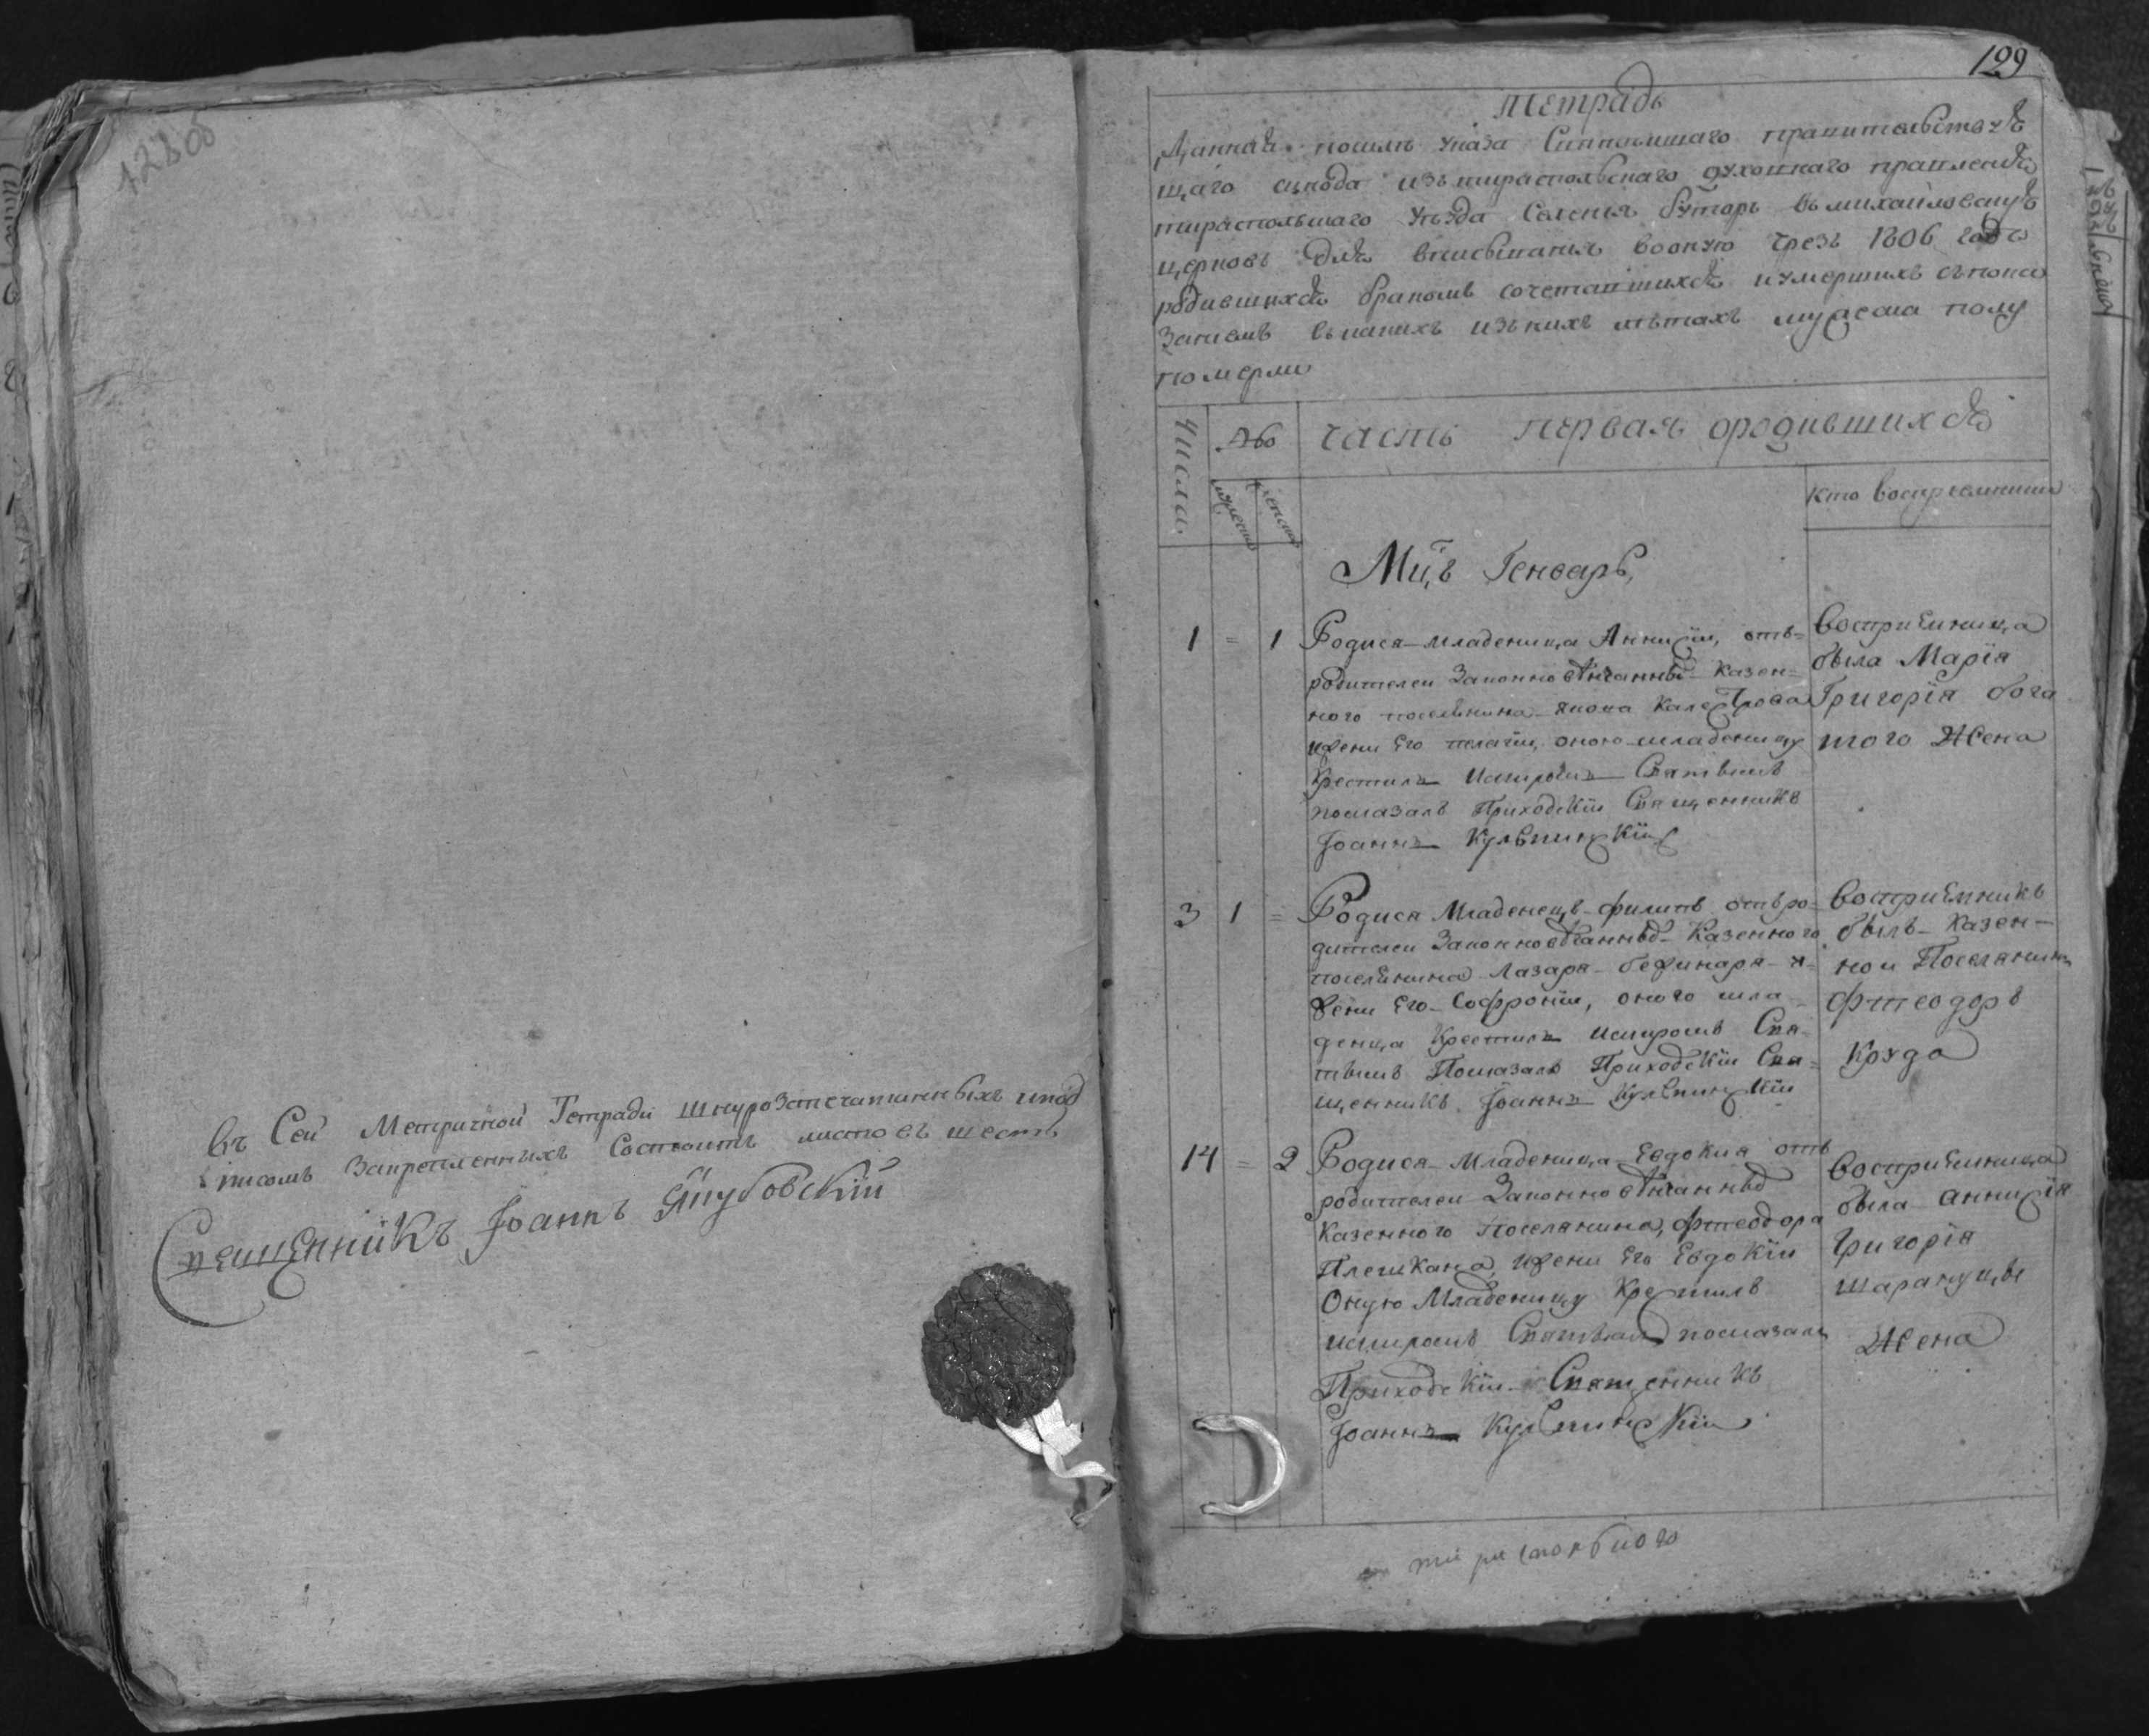 128об
въ Сеи Метричной Тетради шнурозапечатанныхъ ипод
писомъ Закрепленныхъ Состоитъ листовъ шесть
Священникъ Іоаннъ Якубовскїй
129
тетрадь
Данная посилѣ указа Святѣйшаго правительствую
щаго сѵнода изътираспольскаго духовнаго правленїя
тираспольскаго уѣзда Селенїя буторъ въмихайловскую
церковь для вписыванїя вооную чрезъ 1806 годъ
родившихся бракомъ сочетавшихся иумершихъ съпока
Занїемъ въкакихъ изънихъ лѣтахъ мужеска полу
померли
Числа
часть первая ородившихся
мужеска
женска
кто воспрїемники
Мц,ъ Генварь,
1 = 1 Родися младеница Аннисїи, отъ=
родителеи Законновѣнчанныхъ Казен=
ного поселянина якова Калестрова
ижени Его пелагїи, оною младеницу
Крестилъ имиромъ Святымъ
помазалъ Приходскїи Священникъ
Іоаннъ Кульчинскїи
воспрїемница
была Марїя
Григорїя бога
того Жена
3 1 = Родися Младенецъ филипъ отъро=
дителеи Законновѣнчанныхъ Казенного
поселянина Лазаря бежинаря и=
жени Его Софронїи, оного мла=
денца Крестилъ имиромъ Свя=
тымъ Помазалъ Приходскїи Свя=
щенникъ Іоаннъ Кульчинскїи
воспрїемникъ
былъ Казен=
нои Поселянинъ
Фтеодоръ
14 = 2 Родися Младеница Евдокия отъ
родителеи Законновѣнчанныхъ
Казенного Поселянина, Фтеодора
Плешкана, ижени Его Евдокїи
Оную Младеницу Крестилъ
имиромъ Святымъ помазалъ
Приходскїи Священникъ
Іоаннъ Кульчинскїи
воспрїемница
была Аннисїя
Григорїя
Жена